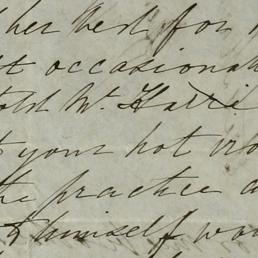 her best for
occasional
told Mr. Harri
yours hot iro
the practice a
himself wou